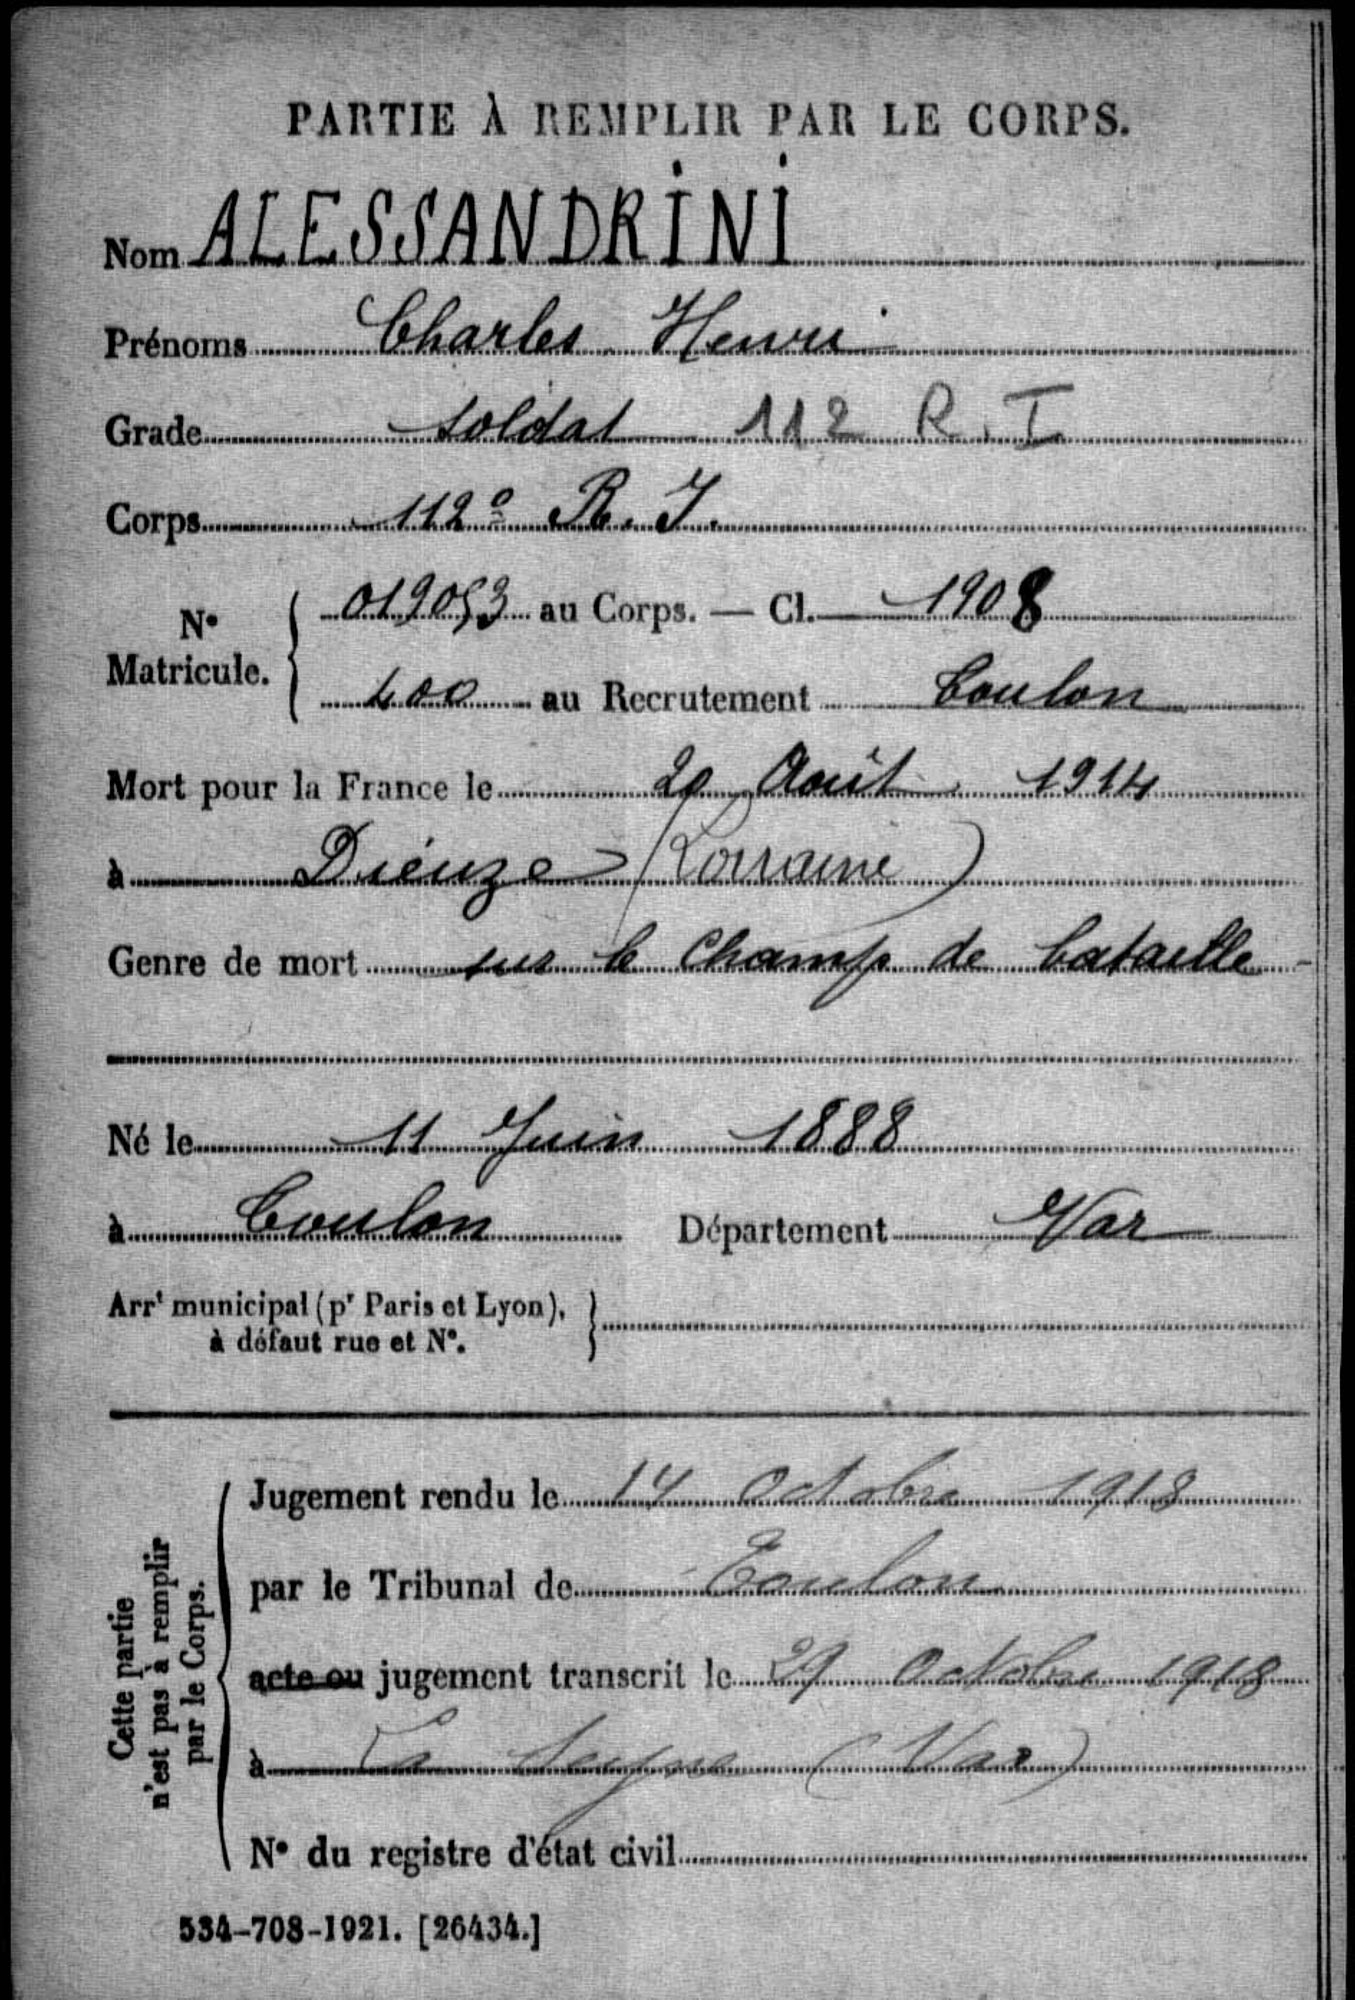 PARTIE À REMPLIR PAR LE CORPS.
Nom ALESSANDRINI
Prénoms Charles Henri
Grade soldat 112 R.I
Corps 112e R.I.
N° Matricule. 019053 au Corps. — Cl. 1908
400 au Recrutement Toulon
Mort pour la France le 20 Août 1914
à Dieuze (Lorraine)
Genre de mort sur le Champ de bataille
Né le 11 Juin 1888
à Toulon Département Var
Arrt municipal (pr Paris et Lyon),
à défaut rue et N°.
Cette partie
n'est pas à remplir
par le Corps.
Jugement rendu le 14 Octobre 1918
par le Tribunal de Toulon
acte ou jugement transcrit le 29 Octobre 1918
à La Seyne (Var)
N° du registre d'état civil
534-708-1921. [26434.]